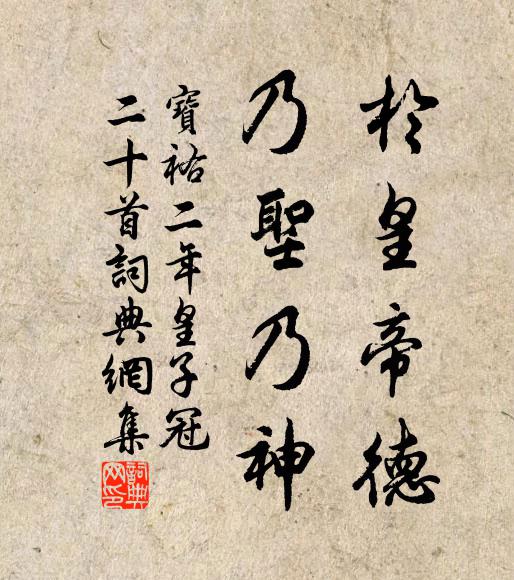 於皇帝德
乃聖乃神
寶祐二年皇子冠
二十首詞典網集
詞典
网印